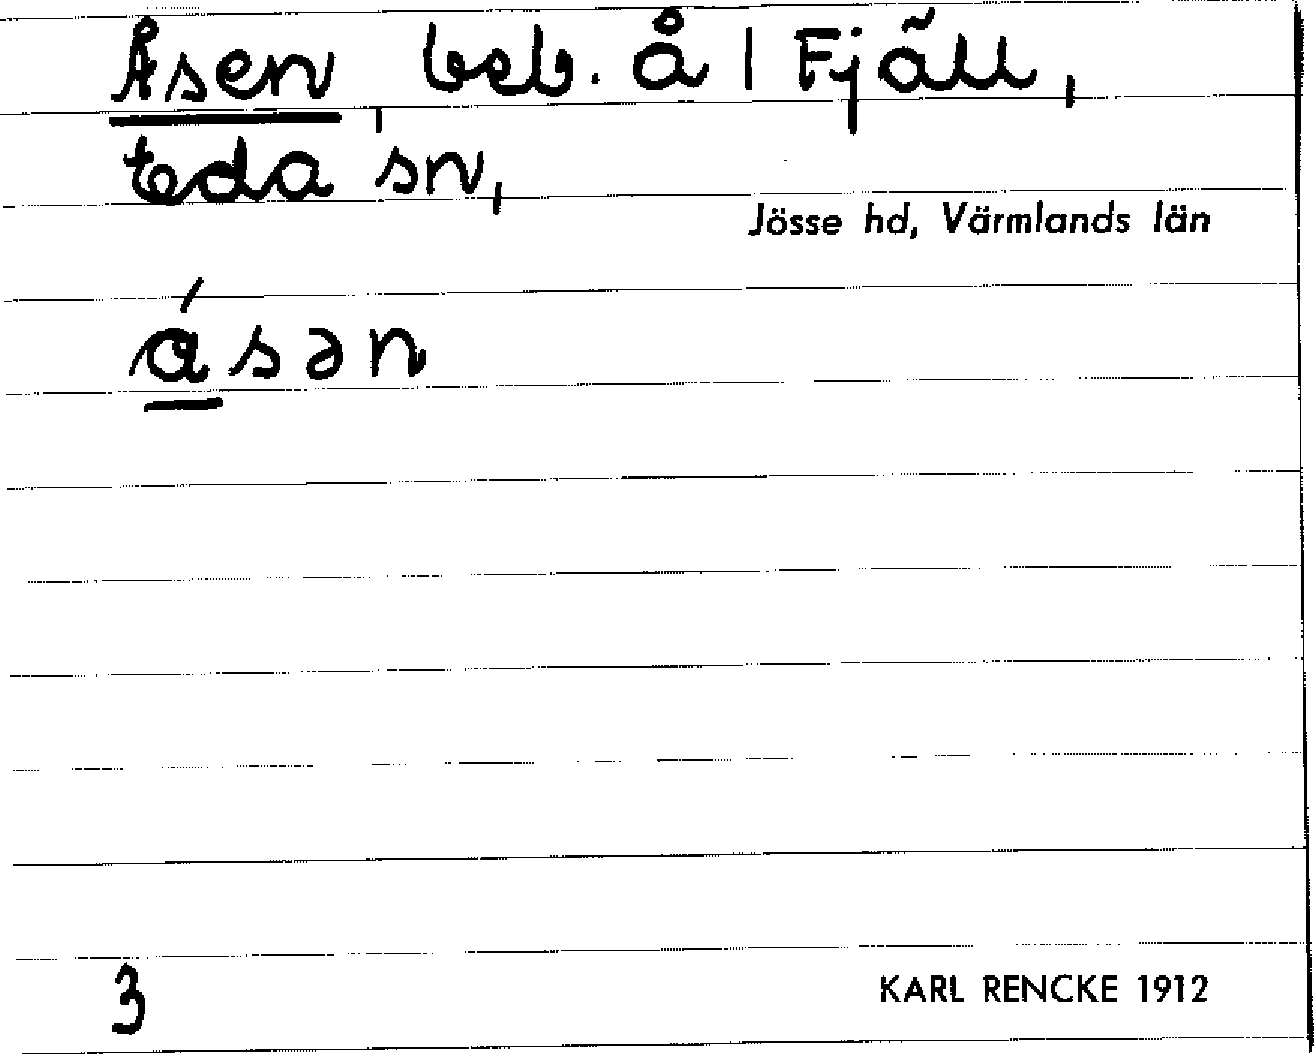 Åsen, beb. å 1 Fjäll,
Eda sn,
Jösse hd, Värmlands län
ɑ́sən
3
KARL RENCKE 1912